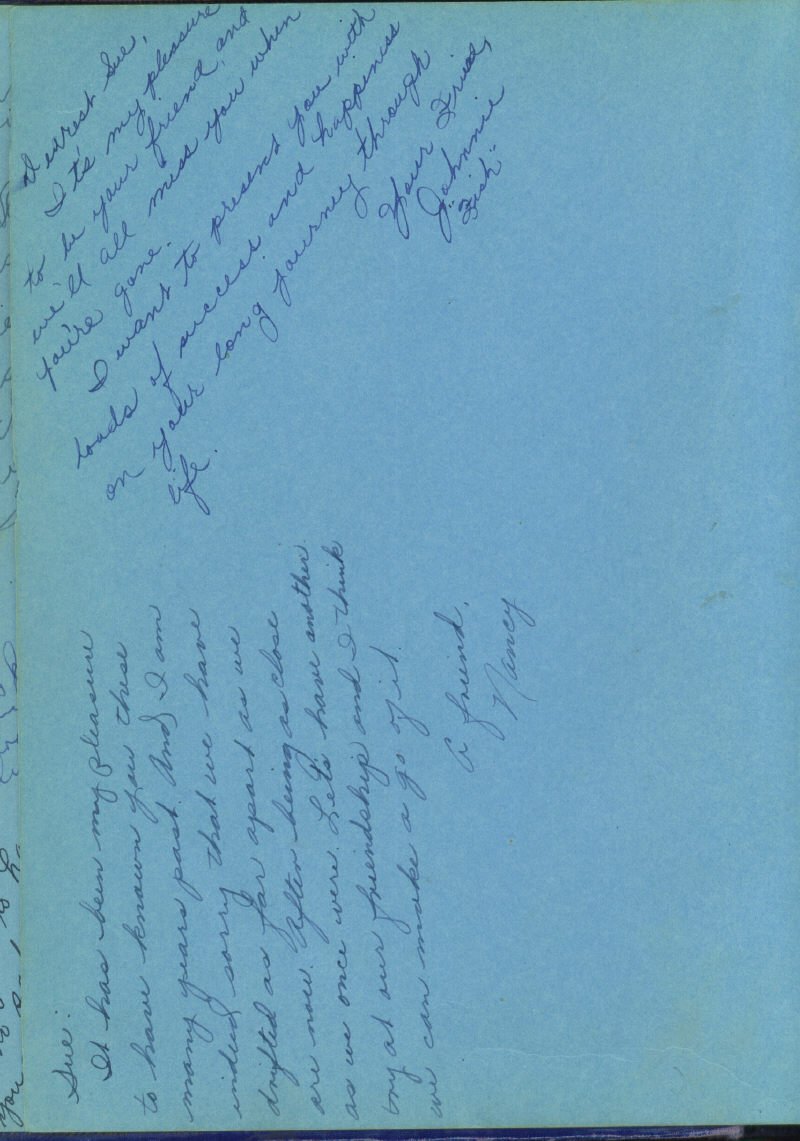 Dearest Sue,
It's my pleasure
to be your friend, and
we'll all miss you when
you're gone.
I want to present you with
loads of success and happiness
on your long journey through
life.
Your Friend,
Johnnie
"Fish"
Sue.
It has been my pleasure
to have known you these
many years past. And I am
indeed sorry that we have
drifted as far apart as we
are now. After being as close
as we once were. Let's have another
try at our friendship and I think
we can make a go of it.
A friend,
Nancy